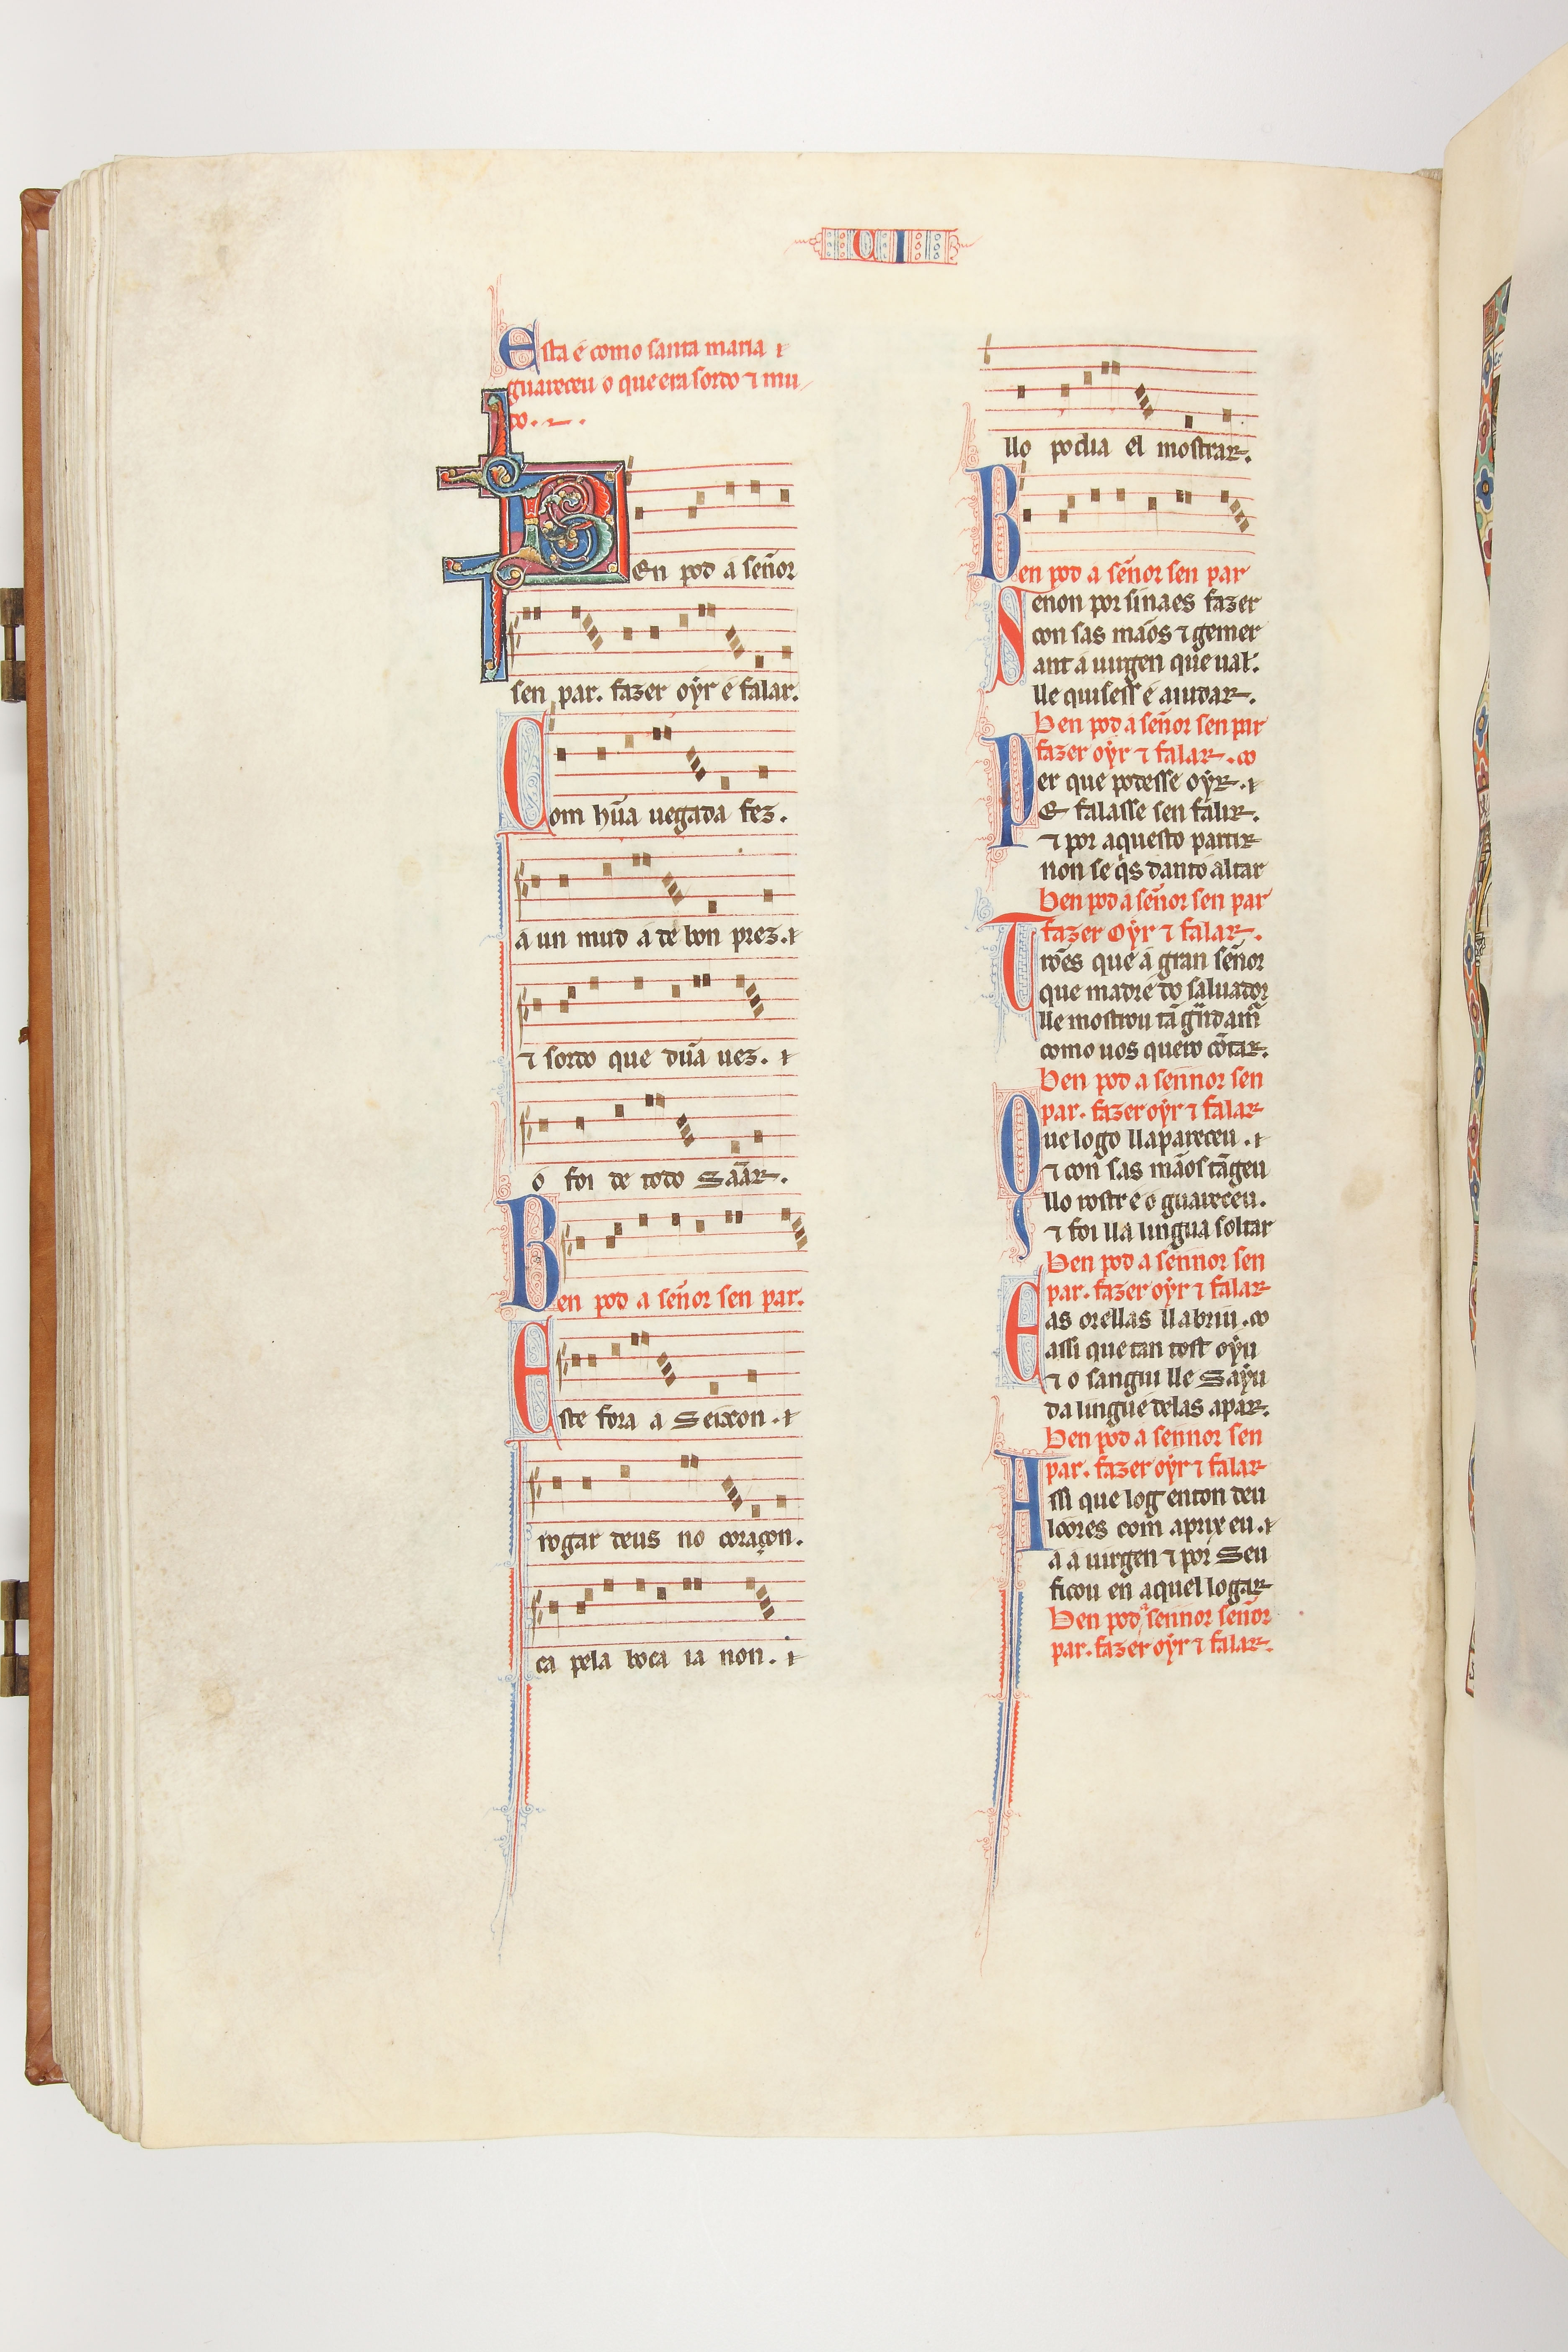 CI
Esta é como santa maria
guareceu o que era sordo ⁊ mu
do.
BEn pod a señor
sen par. fazer oÿr e falar.
Com hũa uegada fez.
a un mud a de bon prez.
⁊ sordo que dũa uez.
o foi de todo Sãar.
Ben pod a señor sen par.
Este fora a Seixon.
rogar deus no coraçon.
ca pela boca ia non.
llo podia el mostrar.
Ben pod a señor sen par
Senon por sinaes fazer
con sas mãos ⁊ gemer
ant a uirgen que ual.
lle quisess e aiudar.
Ben pod a señor sen par
fazer oÿr ⁊ falar.
Per que podesse oÿr.
E falasse sen falir.
⁊ por aquesto partir
non se q̇s dant o altar
Ben pod a señor sen par
fazer oÿr ⁊ falar.
Trões que a gran señor
que madre do saluador
lle mostrou tã
como uos quero cõtar.
Ben pod a sennor sen
par. fazer oÿr ⁊ falar
Que logo ll apareceu.
⁊ con sas mãos tãgeu
llo rostr e o guareceu.
⁊ foi ll a lingua soltar
Ben pod a sennor sen
par. fazer oÿr ⁊ falar
E as orellas ll abriu.
assi que tan tost oyu
⁊ o sangui lle Sayu
da lingu e delas apar.
Ben pod a sennor sen
par. fazer oÿr ⁊ falar
Assi que log enton deu
loores com aprix eu.
a a uirgen ⁊ por Seu
ficou en aquel logar
Ben pod a sennor señor
par. fazer oÿr ⁊ falar.